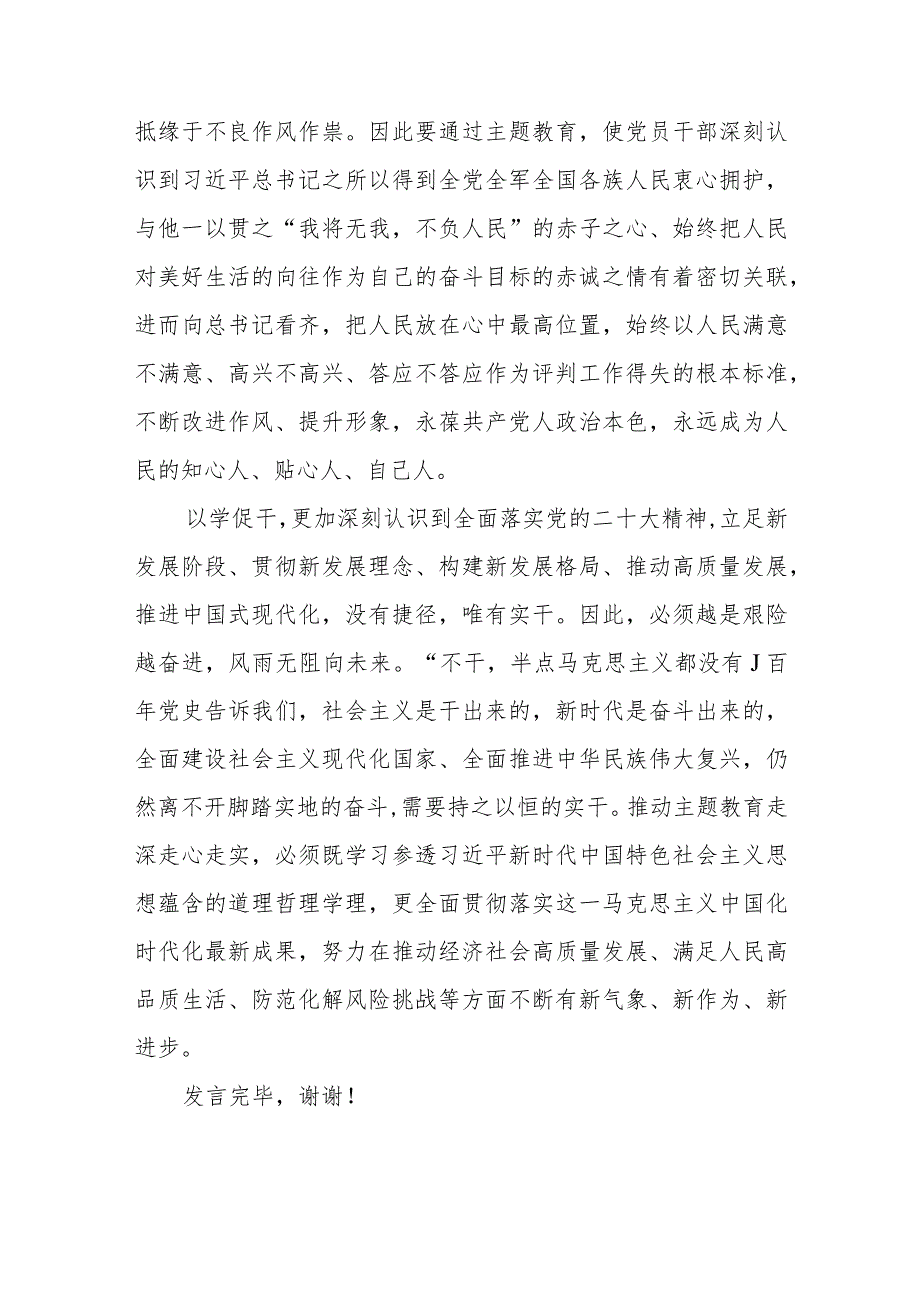 抵缘于不良作风作祟。因此要通过主题教育，使党员干部深刻认
识到习近平总书记之所以得到全党全军全国各族人民衷心拥护，
与他一以贯之“我将无我，不负人民”的赤子之心、始终把人民
对美好生活的向往作为自己的奋斗目标的赤诚之情有着密切关联，
进而向总书记看齐，把人民放在心中最高位置，始终以人民满意
不满意、高兴不高兴、答应不答应作为评判工作得失的根本标准，
不断改进作风、提升形象，永葆共产党人政治本色，永远成为人
民的知心人、贴心人、自己人。
以学促干,更加深刻认识到全面落实党的二十大精神,立足新
发展阶段、贯彻新发展理念、构建新发展格局、推动高质量发展，
推进中国式现代化，没有捷径，唯有实干。因此，必须越是艰险
越奋进，风雨无阻向未来。“不干，半点马克思主义都没有J百
年党史告诉我们，社会主义是干出来的，新时代是奋斗出来的，
全面建设社会主义现代化国家、全面推进中华民族伟大复兴，仍
然离不开脚踏实地的奋斗,需要持之以恒的实干。推动主题教育走
深走心走实，必须既学习参透习近平新时代中国特色社会主义思
想蕴含的道理哲理学理，更全面贯彻落实这一马克思主义中国化
时代化最新成果，努力在推动经济社会高质量发展、满足人民高
品质生活、防范化解风险挑战等方面不断有新气象、新作为、新
进步。
发言完毕，谢谢！